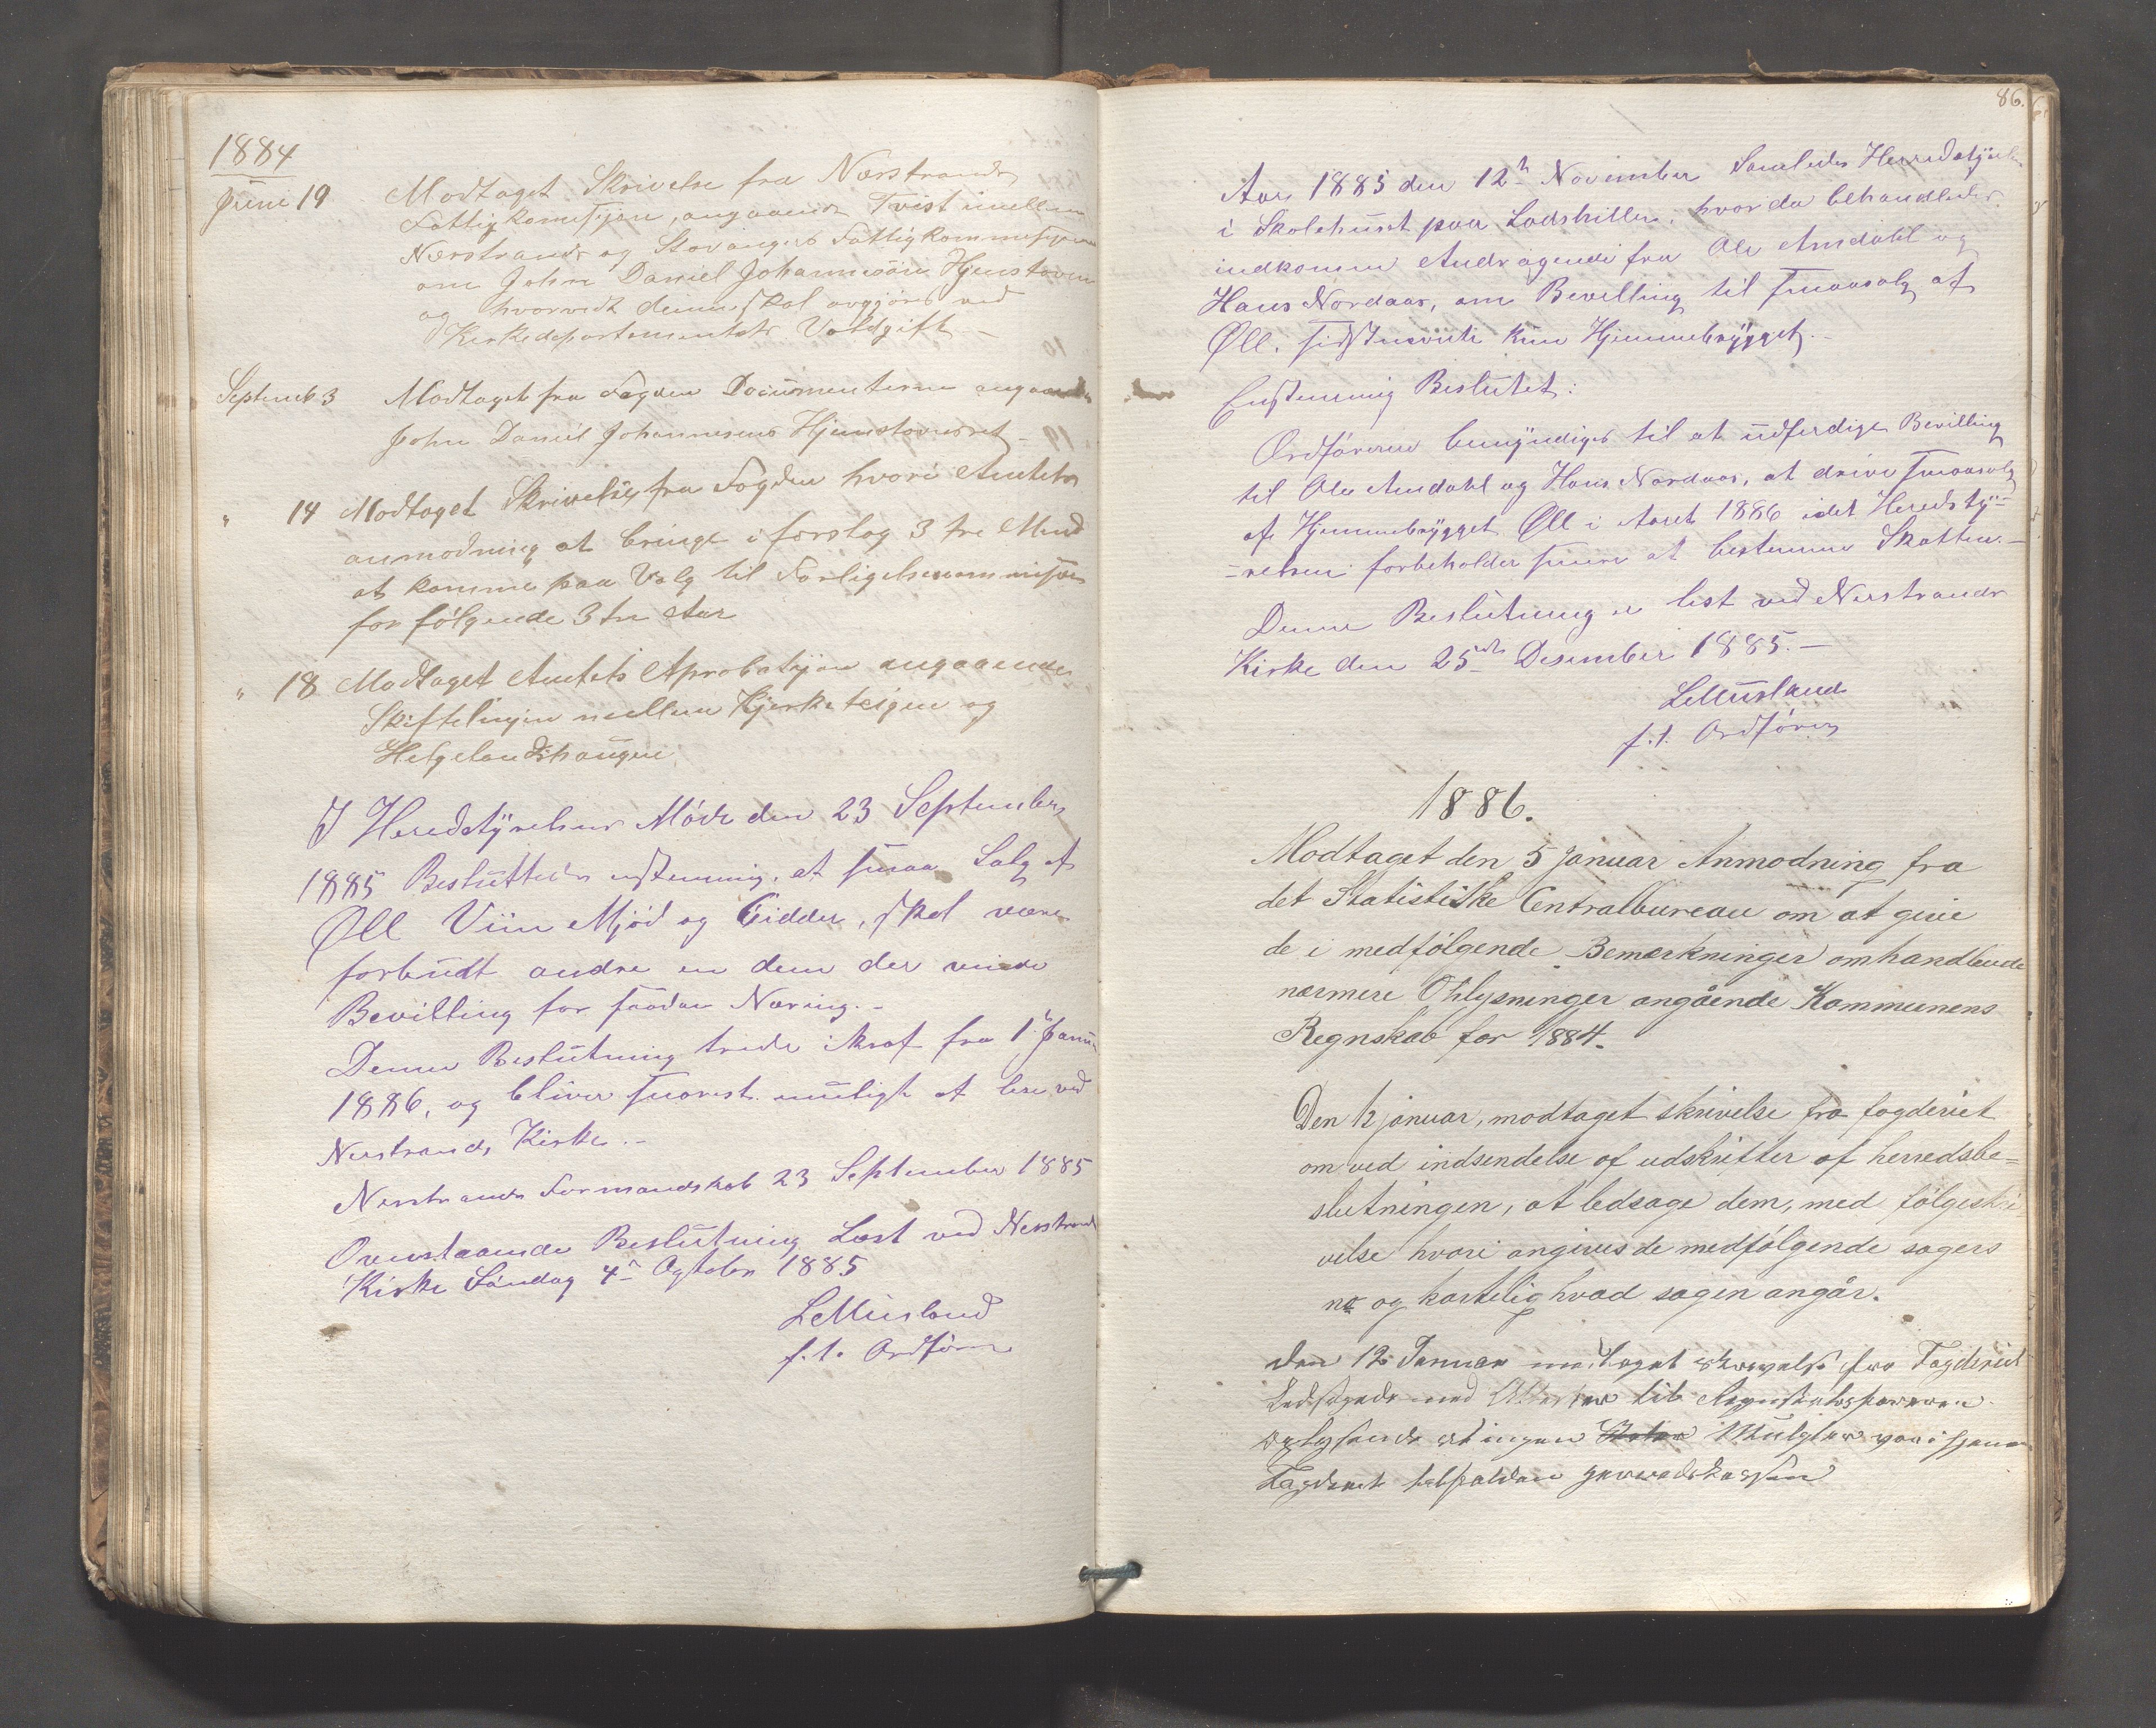 1884
Juni 19 Modtaget Skrivelse fra Nærstrands
Fattigkomisjon, angaaende Tvist imellem
Nærstrands og Stavangers Fattigkommisjon
om John Daniel Johannesøn Hjemstavn
og hvorvidt denne skal avgjøres ved
Kirkedepartementets Voldgift –
Septemb 3 Modtaget fra Fogden Documenterne angaaende
John Daniel Johannesens Hjemstavnsret –
" 14 Modtaget Skrivelse fra Fogden hvori Amtets
anmodning at bringe i forslag 3 tre Mend
at komme paa Valg til Forligelseskommisjon
for følgende 3 tre Aar
" 18 Modtaget Amtets Aprobasjon angaaende
Skiftelinjen mellem Kjerketeigen og
Helgelandshaugen
I Heredstyrelsens Møde den 23 September
1885 Besluttedes enstemmig, at smaa Salg af
Øll Viin Mjød og Cidder, skal være
forbudt andre en dem der vinde
Bevilling for saadan Næring. –
Denne Beslutning træde i kraf fra 1 Januar
1886, og bliver snarest muligt at lese ved
Nerstrands Kirke. –
Nerstrands Formandskab 23 September 1885
Ovenstaaende Beslutning Læst ved Nerstrands
Kirke Søndag 4de Ogtober 1885
L Musland
f. t. Ordfører
86.
Aar 1885 den 12te November Samledes Herredstyrelsen
i Skolehuset paa Ladshillen, hvor da behandledes
indkomne Andragende fra Ole Amdahl og
Hans Nordaas, om Bevilling til smaasalg af
Øll, sidstnevnte kun Hjemmebrygget. –
Enstemmig Beslutet:
Ordføreren bemyndiges til at udferdige Bevilling
til Ole Amdahl og Hans Nordaas, at drive smaasalg
af Hjemmebrygget Øll i Aaret 1886 idet Heredsty-
-relsen forbeholder senere at bestemme Skatten. –
Denne Beslutning er lest ved Nerstrands
Kirke den 25de Desember 1885. –
L Musland
f. t. Ordfører
1886.
Modtaget den 5 Januar Anmodning fra
det Statistiske Centralbureau om at give
de i medfølgende Bemærkninger omhandlende
nærmere Oplysninger angående Kommunens
Regnskab for 1884.
Den 12 januar, modtaget skrivelse fra fogderiet
om ved indsendelse af udskrifter af herredsbe=
slutningen, at ledsage dem, med følgeskri
velse hvori angives de medfølgende sagers
no og kortelig hvad sagen angår.
Den 12 Januar modtaget skrivelse fra Fogderiet
Ledsagende med til
oplysende at ingen Mulgter var i
Fogderiet herredskassen